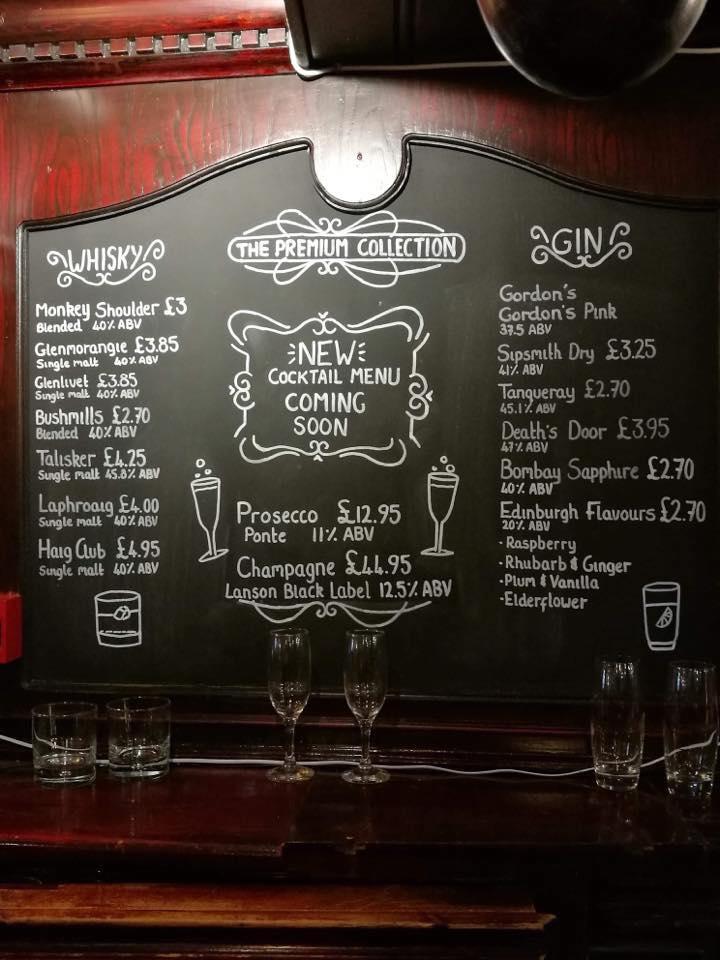 WHISKY
Monkey Shoulder £3
Blended 40% ABV
Glenmorangie £3.85
Single malt 40% ABV
Glenlivet £3.85
Single malt 40% ABV
Bushmills £2.70
Blended 40% ABV
Talisker £4.25
Single malt 45.8% ABV
Laphroaig £4.00
Single malt 40% ABV
Haig Club £4.95
Single malt 40% ABV
THE PREMIUM COLLECTION
NEW
COCKTAIL MENU
COMING
SOON
Prosecco £12.95
Ponte 11% ABV
Champagne £44.95
Lanson Black Label 12.5% ABV
GIN
Gordon's
Gordon's Pink
37.5 ABV
Sipsmith Dry £3.25
41% ABV
Tanqueray £2.70
45.1% ABV
Death's Door £3.95
47% ABV
Bombay Sapphire £2.70
40% ABV
Edinburgh Flavours £2.70
20% ABV
· Raspberry
· Rhubarb & Ginger
· Plum & Vanilla
· Elderflower